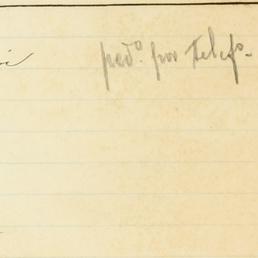 ped.º por Telefº.